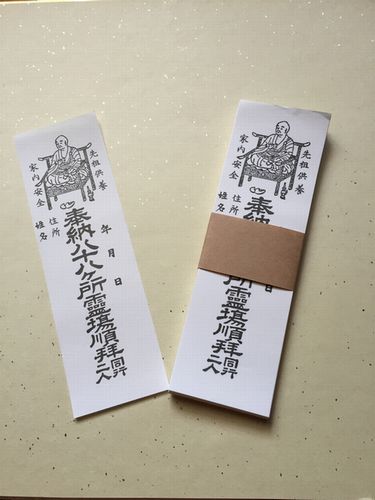 先祖供養
家内安全
年 月 日
奉納八十八ヶ所靈場順拝同行二人
住所
姓名
先祖供養
家内安全
奉
所靈場順拝同行二人
住所
姓名